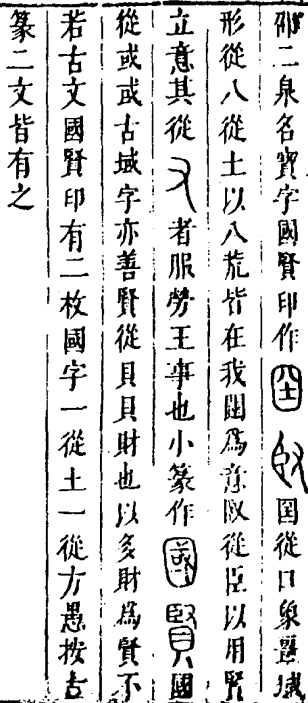 邵二泉名寶字國賢印作囶臤国從囗象疆域
形從八從土以八荒皆在我闥爲意臤從臣以用賢
立意其從又者服勞王事也小篆作國賢國
從或或古域字亦善賢從貝貝財也以多財爲賢不
若古文國賢印有二枚國字一從土一從方愚按古
篆二文皆有之